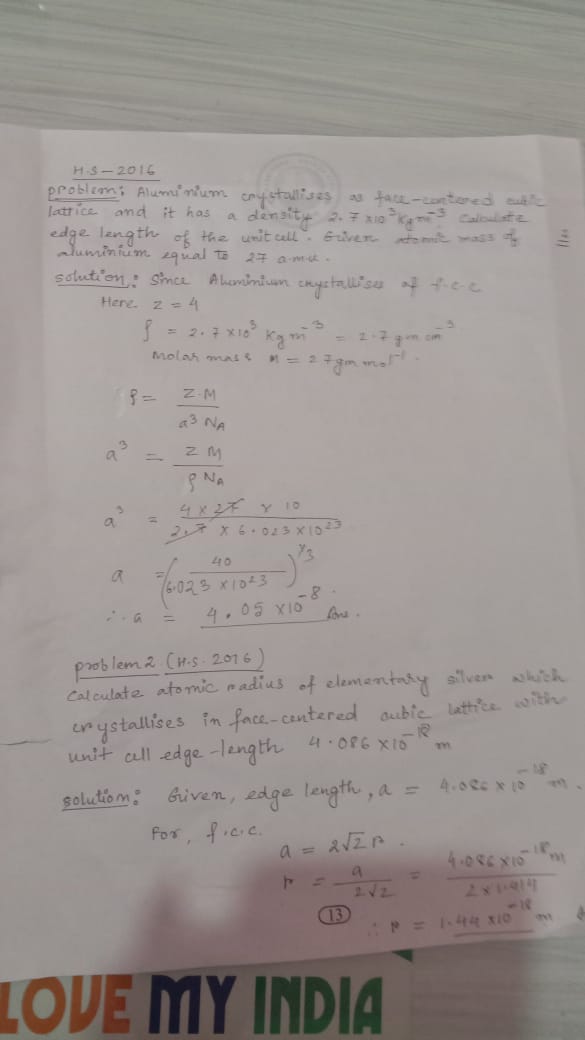 H.S-2016
problem: Aluminium crystallises as face-centered cubic
lattice and it has a density 2.7 x10³ kg m⁻³ Calculate
edge length of the unit cell. Given atomic mass of
aluminium equal to 27 a.m.u.
solution: Since Aluminium crystallises of f.c.c
Here z = 4
ρ = 2.7 x10³ kg m⁻³ = 2.7 gm cm⁻³
Molar mass M = 27 gm mol⁻¹.
ρ = Z.M / a³ NA
a³ = Z M / ρ NA
a³ = 4 x 27 x 10 / 2.7 x 6.023 x 10²³
a = (40 / 6.023 x 10²³)^1/3
∴ a = 4.05 x10⁻⁸ .
problem 2 (H.S. 2016)
Calculate atomic radius of elementary silver which
crystallises in face-centered cubic lattice with
unit cell edge-length 4.086 x10⁻¹⁸ m
solution: Given, edge length, a = 4.086 x 10⁻¹⁸ m.
For, f.c.c. a = 2√2 r.
r = a / 2√2 = 4.086 x10⁻¹⁸ m / 2 x 1.414
∴ r = 1.44 x10⁻¹⁸ m
13
LOVE MY INDIA